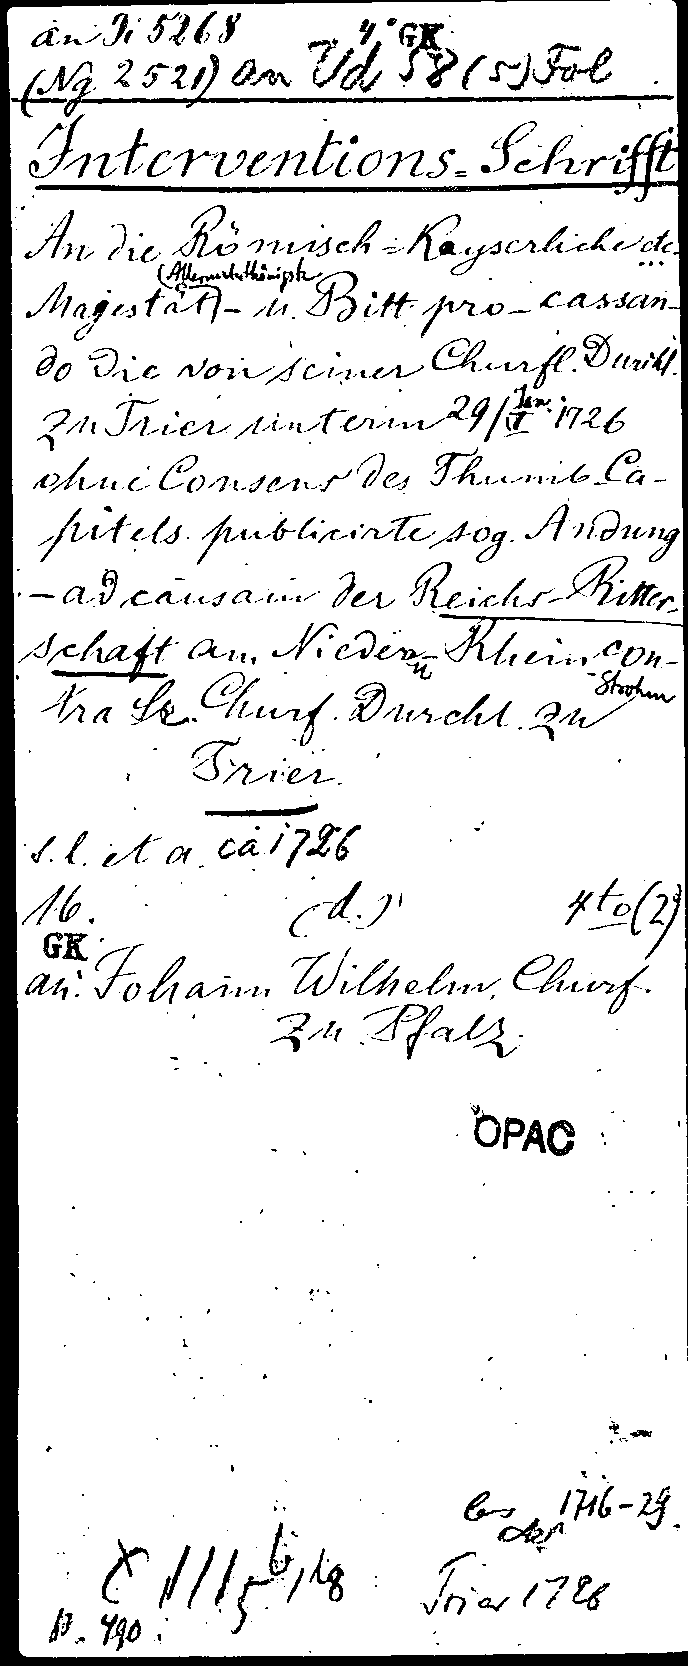 an Ji 5268 4° GK
(Ng 2521) an Vd 58 (5) Fol
Interventions=Schrifft
An die Römisch=Kayserliche etc.
Magestät)- u. Bitt pro-cassan-
do die von seiner Churfl. Durchl.
zu Trier unterm 29/I Jan. 1726
ohne Consens des Thumb-Ca-
pitels publicirte sog. Andung
-ad causam der Reichs-Ritter-
schaft am Nieder-Rheinstrohm con-
tra Se. Churf. Durchl. zu
Trier.
s.l. et a. ca 1726
16. (d.) 4to (2)
GK
an: Johann Wilhelm, Churf.
zu Pfalz.
OPAC
1716-29.
Trier 1726
p. 490.